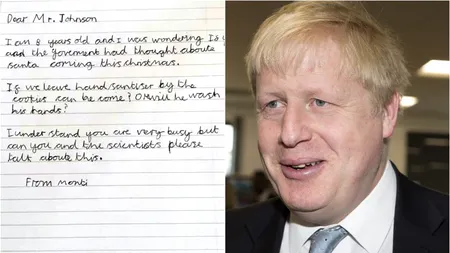 Dear Mr. Johnson
I am 8 years old and I was wondering If
and the goverment had thought aboute
santa coming this christmas.
If we leave hand sanitiser by the
cookies can he come? Or will he wash
his hands?
I under stand you are very busy but
can you and the scientists please
talk about this.
From monti